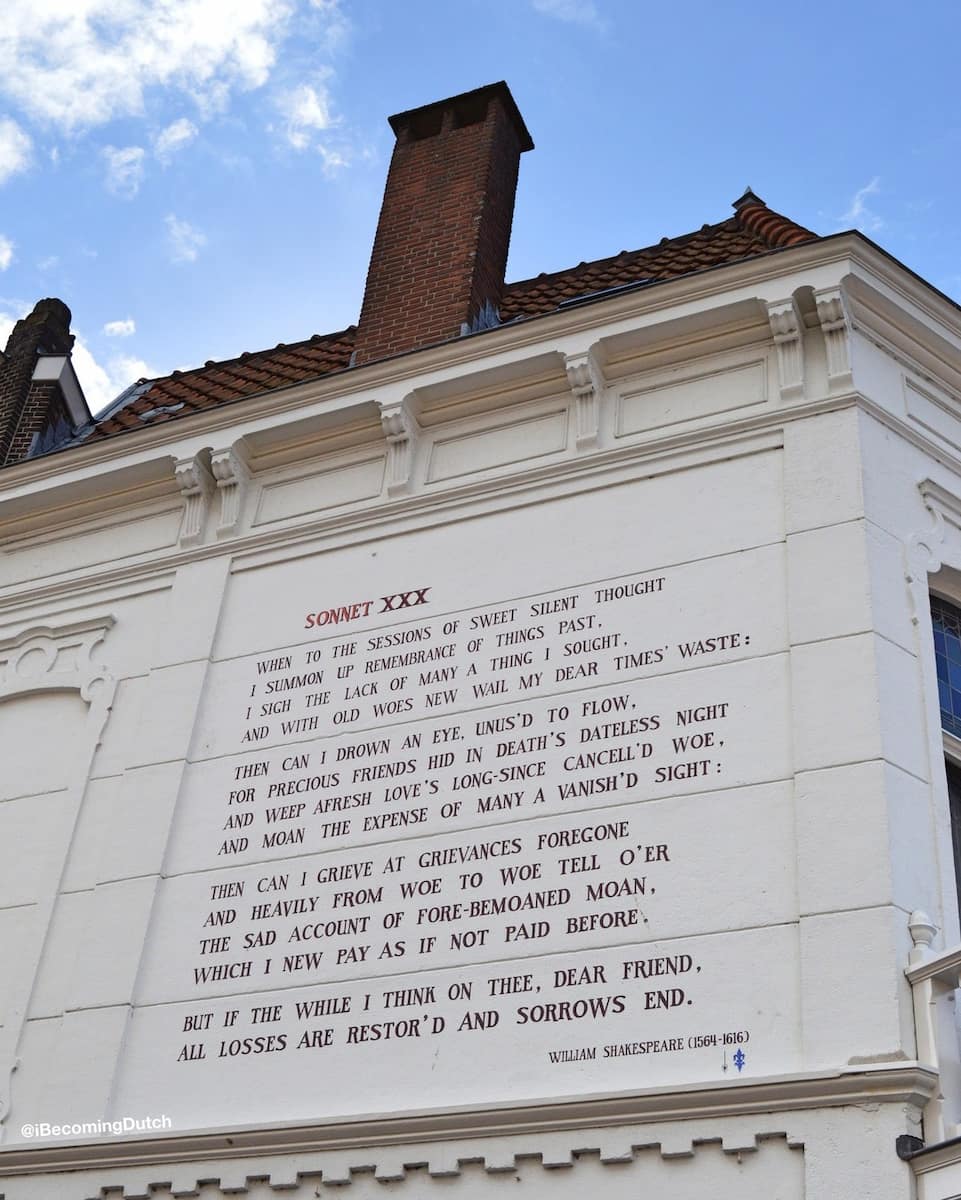 SONNET XXX
WHEN TO THE SESSIONS OF SWEET SILENT THOUGHT
I SUMMON UP REMEMBRANCE OF THINGS PAST,
I SIGH THE LACK OF MANY A THING I SOUGHT,
AND WITH OLD WOES NEW WAIL MY DEAR TIMES' WASTE:
THEN CAN I DROWN AN EYE, UNUS'D TO FLOW,
FOR PRECIOUS FRIENDS HID IN DEATH'S DATELESS NIGHT
AND WEEP AFRESH LOVE'S LONG-SINCE CANCELL'D WOE,
AND MOAN THE EXPENSE OF MANY A VANISH'D SIGHT:
THEN CAN I GRIEVE AT GRIEVANCES FOREGONE
AND HEAVILY FROM WOE TO WOE TELL O'ER
THE SAD ACCOUNT OF FORE-BEMOANED MOAN,
WHICH I NEW PAY AS IF NOT PAID BEFORE.
BUT IF THE WHILE I THINK ON THEE, DEAR FRIEND,
ALL LOSSES ARE RESTOR'D AND SORROWS END.
WILLIAM SHAKESPEARE (1564-1616)
@iBecomingDutch